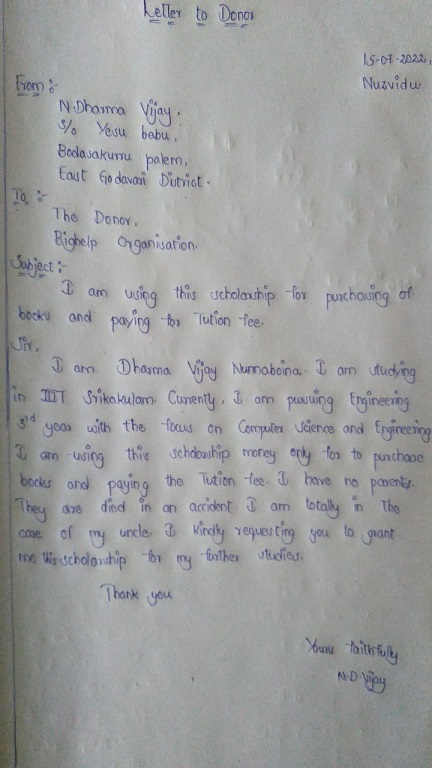 Letter to Donor
15-07-2022,
Nuzvidu
From :-
N. Dharma Vijay.
S/o Yesu babu,
Bodasakurru palem,
East Godavari District.
To :-
The Donor,
Bighelp Organisation.
Subject :-
I am using this scholarship for purchasing of
books and paying for Tution fee.
Sir,
I am Dharma Vijay Nunnaboina. I am studying
in IIIT Srikakulam. Currently, I am pursuing Engineering
3rd year with the focus on Computer Science and Engineering
I am using this scholarship money only for to purchase
books and paying the Tution fee. I have no parents.
They are died in an accident. I am totally in The
care of my uncle. I kindly requesting you to grant
me this scholarship for my further studies.
Thank you
Yours faithfully
N.D.Vijay